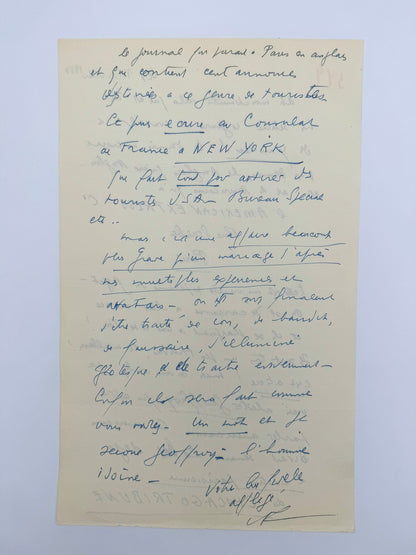 le journal qui parait a Paris en anglais
et qui contient cent annonces
destinées a ce genre de touristes
Et puis ecrire au Consulat
de France a NEW YORK
qui fait tout pour attirer des
touristes USA - Bureau Special
etc..
mais c'est une affaire beaucoup
plus grave qu'un mariage d'après
mes multiples experiences et
avatars - on est sur finalement
d'etre traité de con, de bandit,
de faussaire, d'illuminé
grotesque & de traitre evidemment -
Enfin cela sera fait comme
vous voulez - Un mot et je
Geoffroy - l'homme
idoine -
Votre fidele
affligé